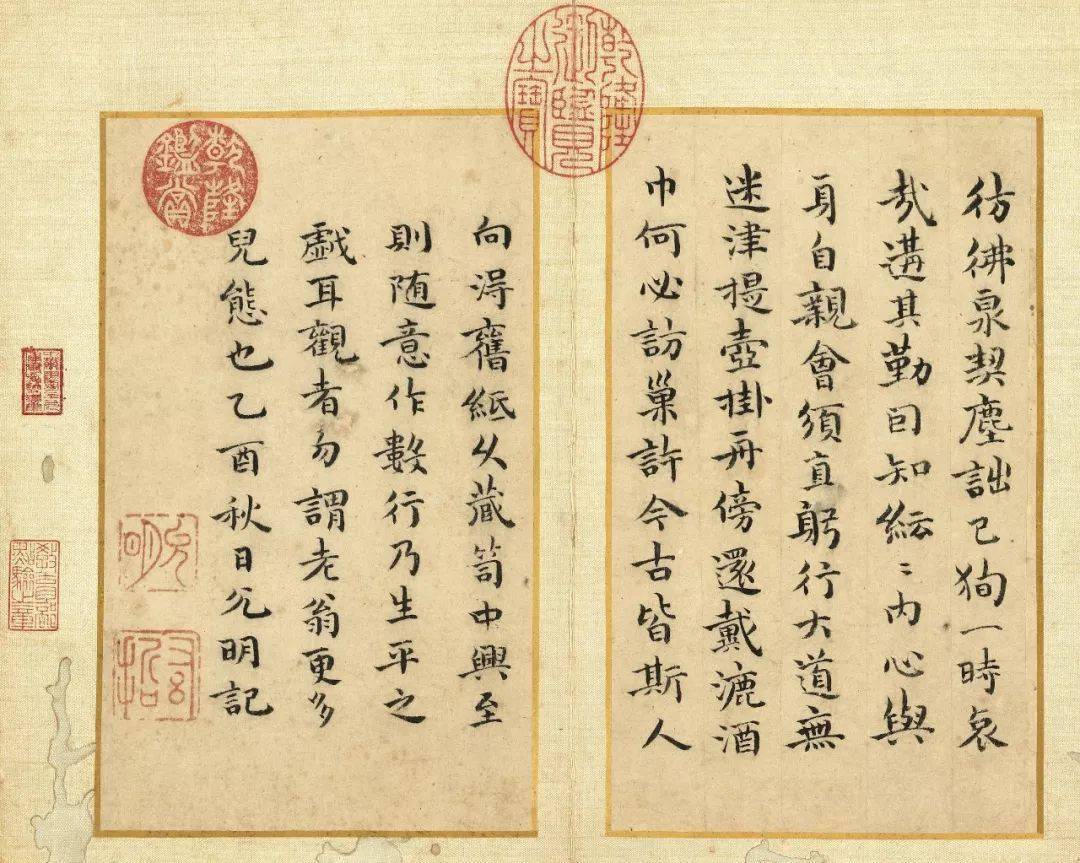 乾隆御覽之寶
彷彿泉契塵詘己狥一時哀
哉遘其勤囙知紜〻内心與
身自親會須直躬行大道無
迷津提壺掛舟傍還戴漉酒
巾何必訪巢許今古皆斯人
向淂舊紙久藏笥中興至
則随意作數行乃生平之
戱耳觀者勿謂老翁更多
兒態也乙酉秋日允明記
乾隆鑑賞
允明